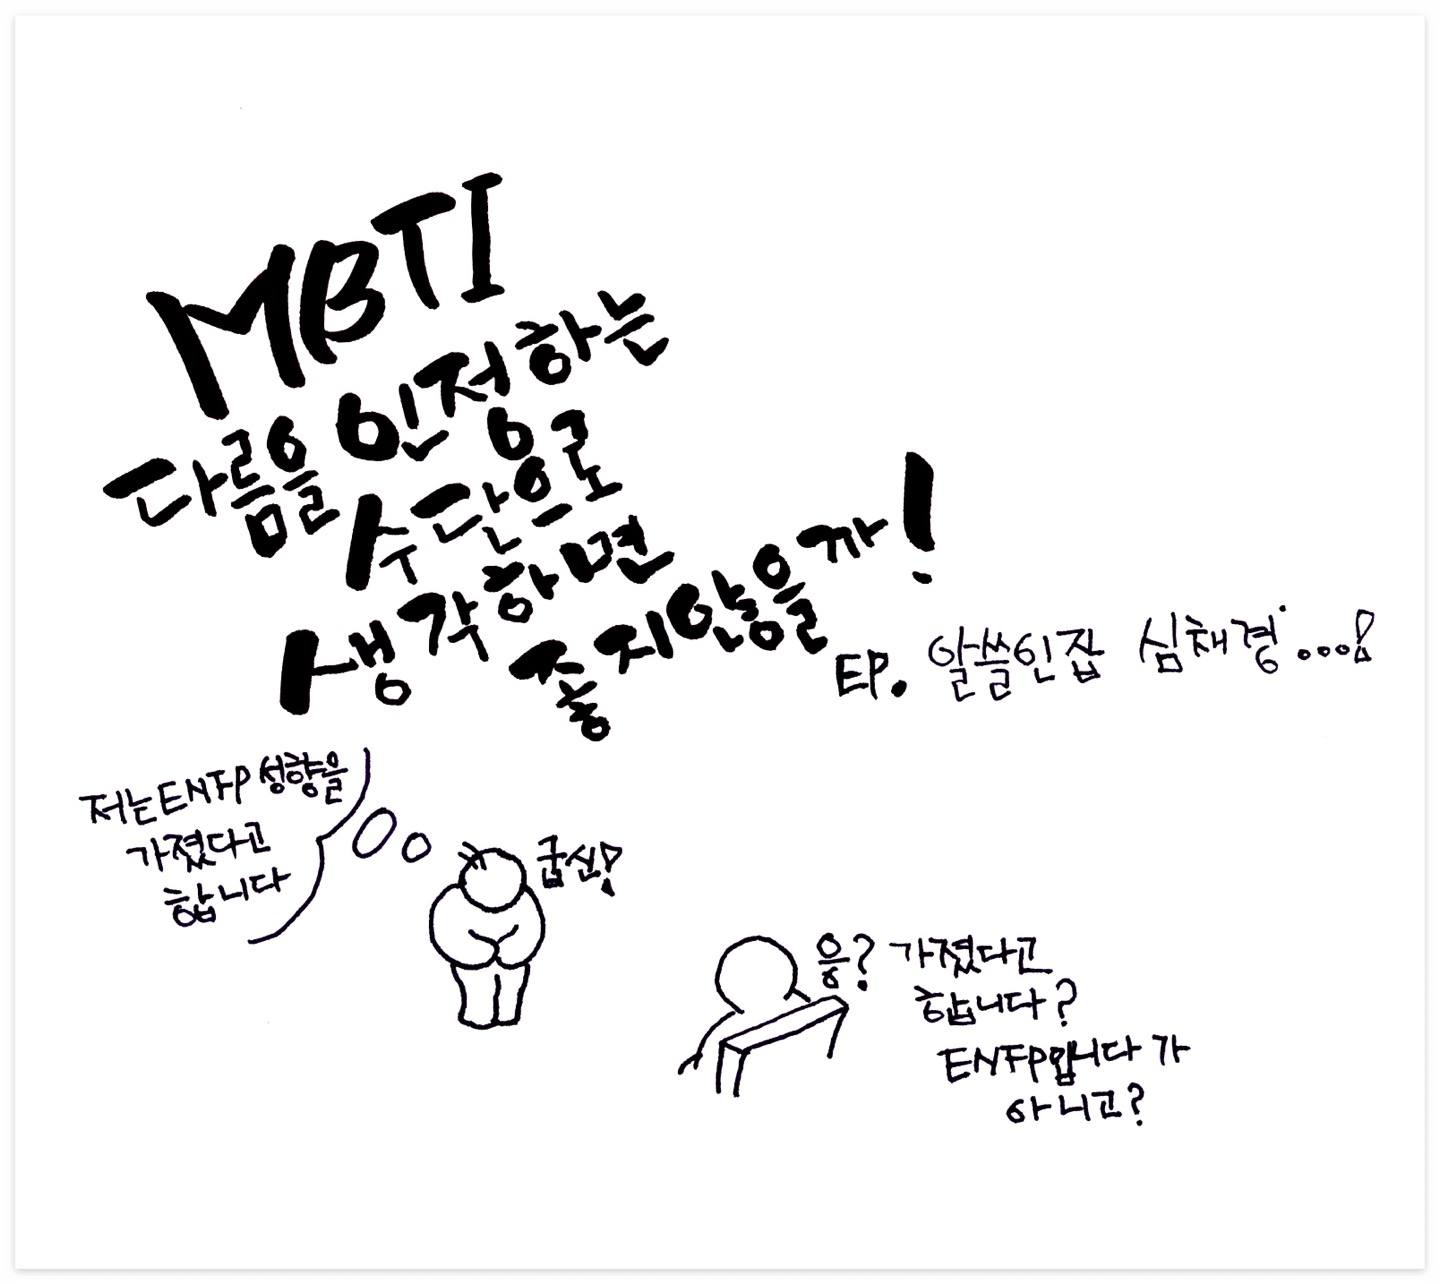 MBTI
다름을 인정하는
수단으로
생각하면
좋지않을까!
EP. 알쓸인잡 심채경...!
저는ENFP 성향을
가졌다고
합니다
굽신!
응? 가졌다고
합니다?
ENFP입니다 가
아니고?